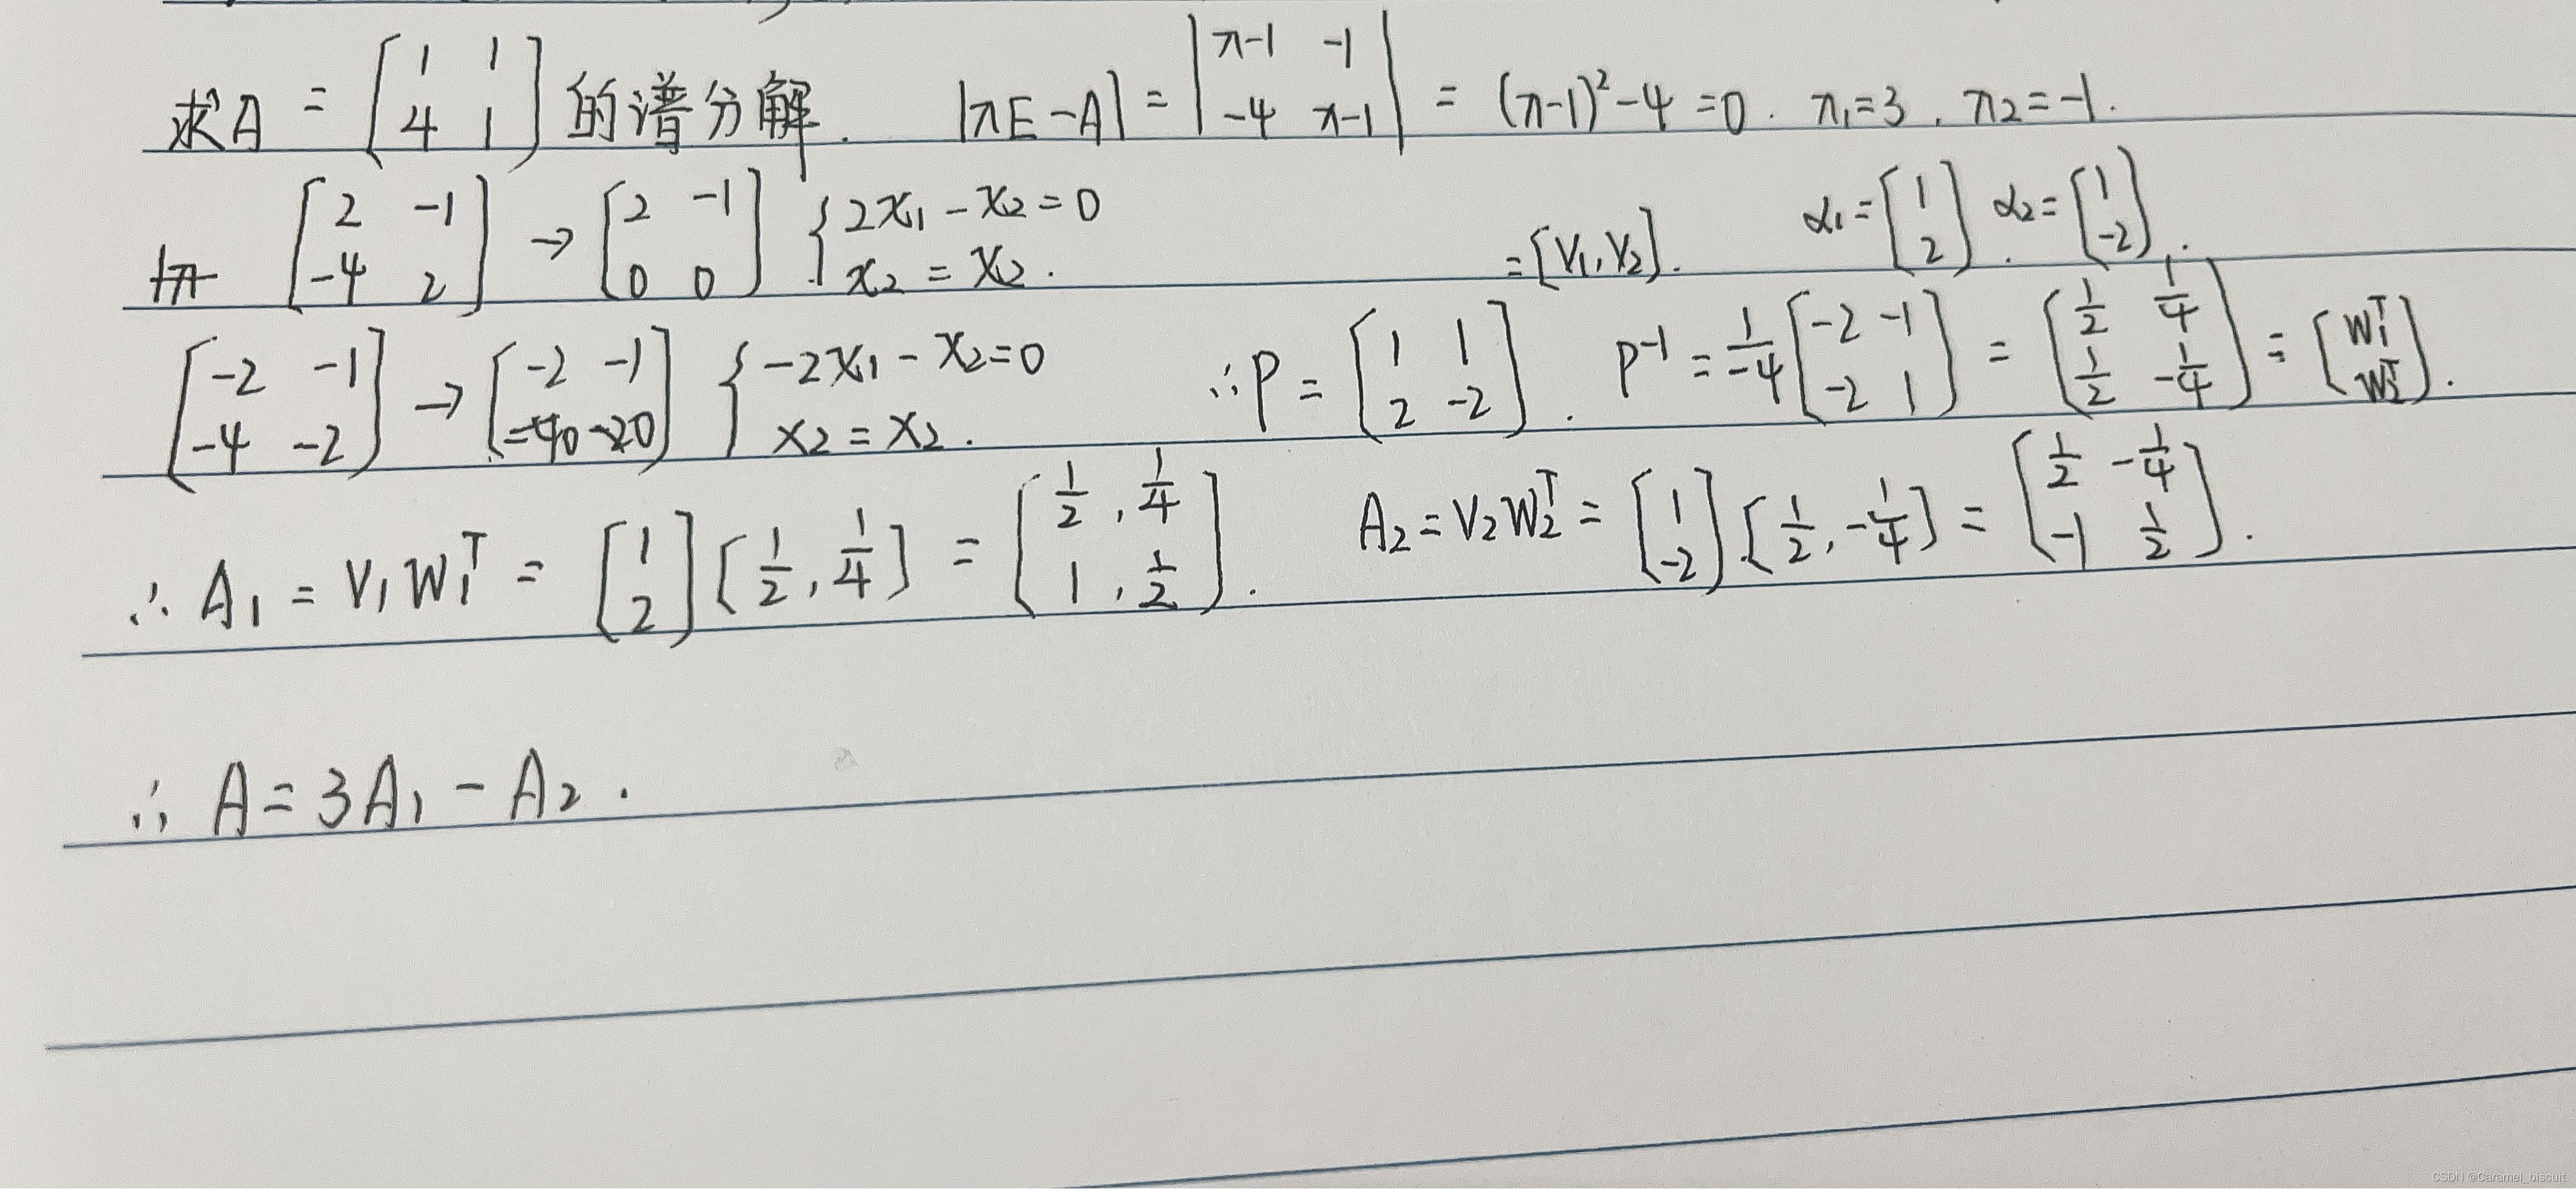 求A = [1 1; 4 1] 的谱分解. |λE-A| = |λ-1 -1; -4 λ-1| = (λ-1)²-4=0. λ₁=3, λ₂=-1.
[2 -1; -4 2] → [2 -1; 0 0] {2x₁-x₂=0; x₂=x₂. =[V₁,V₂]. α₁=[1; 2]. α₂=[1; -2].
[-2 -1; -4 -2] → [-2 -1; 0 0] {-2x₁-x₂=0; x₂=x₂. ∴P=[1 1; 2 -2]. P⁻¹=1/-4[-2 -1; -2 1] = [1/2 1/4; 1/2 -1/4] = [W₁ᵀ; W₂ᵀ].
∴A₁=V₁W₁ᵀ=[1; 2][1/2, 1/4] = [1/2, 1/4; 1, 1/2]. A₂=V₂W₂ᵀ=[1; -2][1/2, -1/4] = [1/2 -1/4; -1 1/2].
∴A=3A₁-A₂.
CSDN @Caramel_biscuit